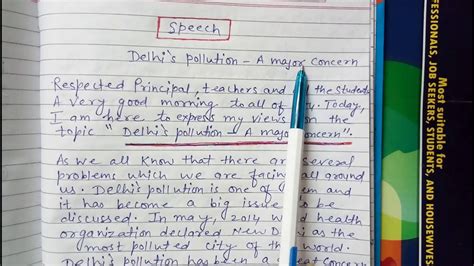 Speech
Delhi's pollution - A major concern
Respected Principal, teachers and the students
A very good morning to all of. Today,
I am here to express my views on the
topic "Delhi's pollution - A major concern".
As we all know that there are several
problems which we are facing all around
us. Delhi's pollution is one of them and
it has become a big issue to be
discussed. In may, 2014 world health
organization declared New Delhi as the
most polluted city of the world.
Delhi's pollution has been a great concern
Most suitable for
PROFESSIONALS,
JOB SEEKERS, STUDENTS, AND HOUSEWIVES